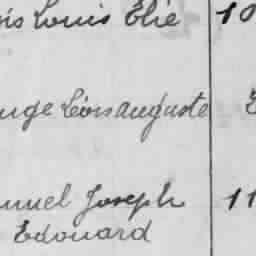 ois Louis Élie 10
uge Léonauguste
nuel Joseph 11
Edouard